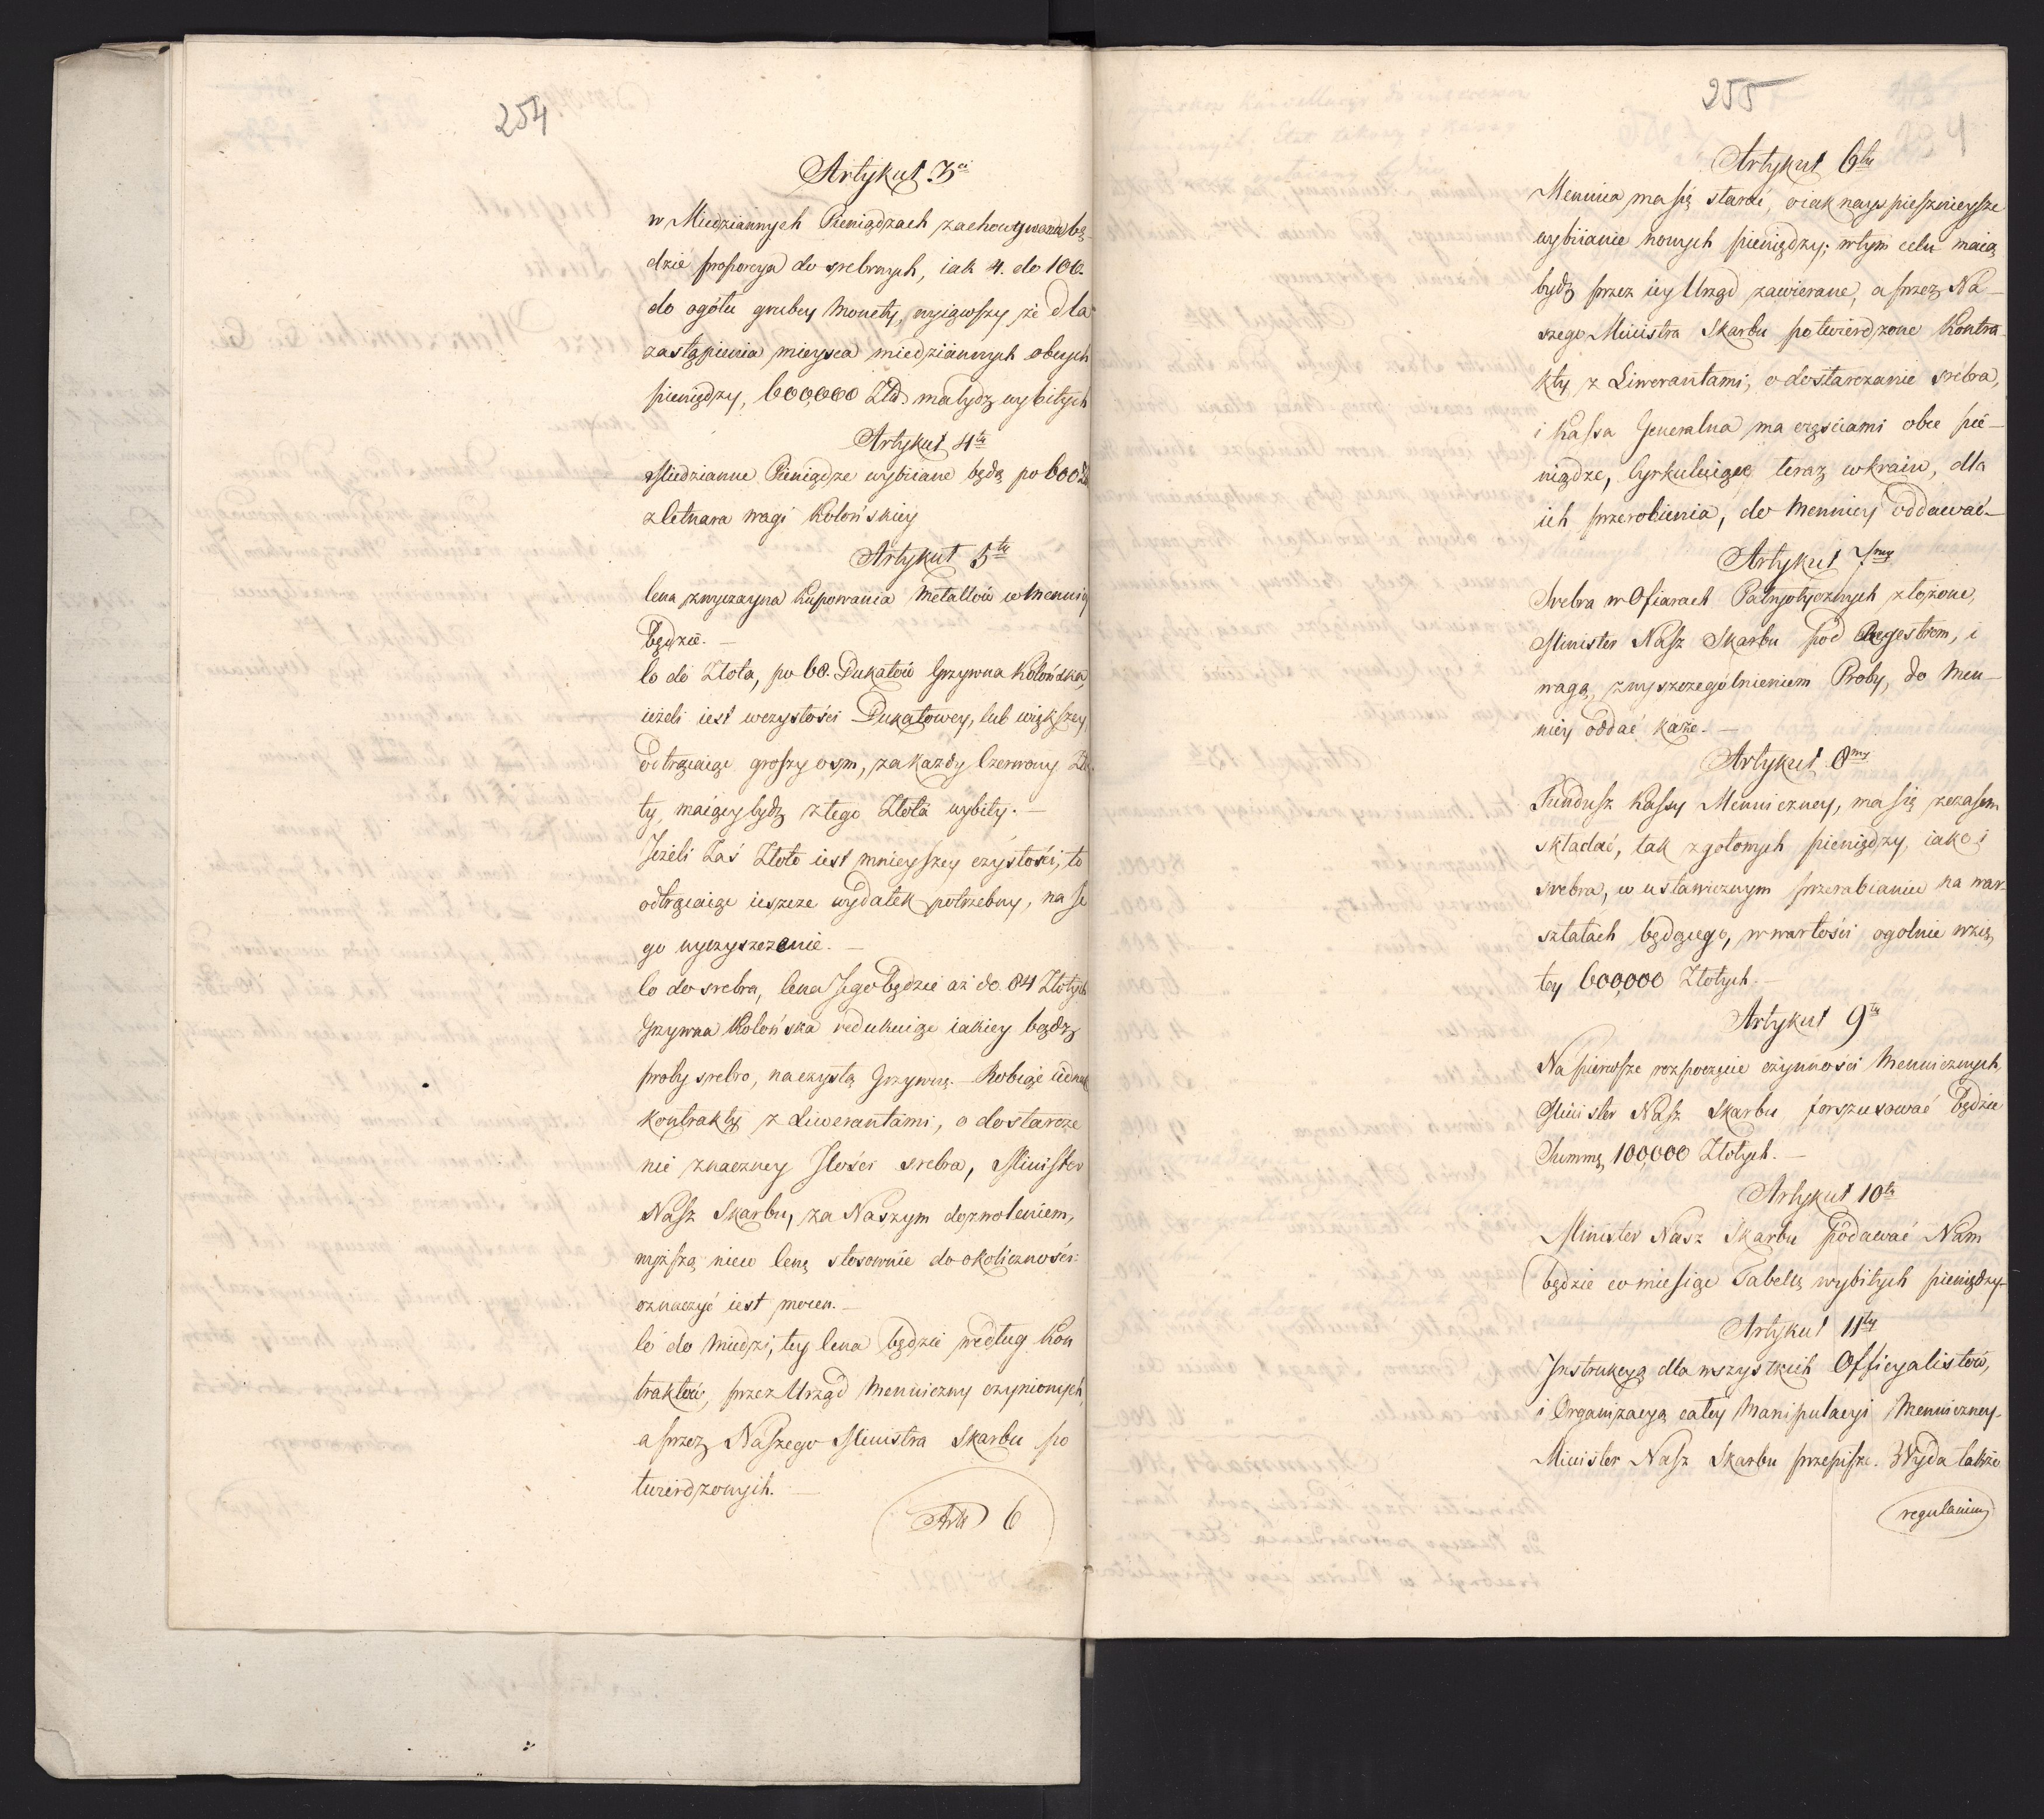 254
Artykuł 3ci
w Miedziannych Pieniądzach zachowywana bę-
dzie proporcya do srebrnych, iak 4. do 100.
do ogółu grubey Monety, wyiąwszy że dla
zastąpienia mieysca miedziannych obcych
pieniędzy, 600,000 Złł. ma bydz wybitych
Artykuł 4ty
Miedzianne Pieniądze wybiiane będą po 600 Zł
z Cetnara wagi Kolońskiey
Artykuł 5ty
Cena zwyczayna kupowania Metallów w Mennicy
będzie. —
Co do Złota, po 68. Dukatów Grzywna Kolońska,
ieżeli iest w czystości Dukatowey, lub większey
odtrąciaiąc groszy osm, za każdy Czerwony Zło-
ty, maiący bydz z tego Złota wybity. —
Jeżeli Zaś Złoto iest mnieyszey czystości, to
odtrącaiąc ieszcze wydatek potrzebny, na Je
go wyczyszczenie. —
Co do srebra, Cena Jego będzie aż do 84 Złotych
Grzywna Kolońska redukuiąc iakiey bądź
proby srebro, na czystą Grzywnę. — Robiąc iednak
kontrakty z Liwerantami, o dostarcze
nie znaczney Ilości srebra, Minister
Nasz Skarbu, za Naszym dozwoleniem,
wyższą nieco Cenę stosownie do okoliczności
oznaczyć iest mocen. —
Co do Miedzi, tey Cena będzie według Kon
traktów, przez Urząd Menniczny czynionych,
a przez Naszego Ministra Skarbu po
twierdzonych. —
Artł 6
255
Artykuł 6ty
Mennica ma się starać, o iak nayspiesznieysze
wybiianie nowych pieniędzy; w tym celu maią
bydz przez iey Urząd zawierane, a przez Na-
szego Ministra Skarbu potwierdzone Kontra-
kty z Liwerantami, o dostarczanie srébra,
i Kassa Generalna ma częściami obce pie-
niądze, Cyrkuluiące teraz w kraiu, dla
ich przerobienia, do Mennicy oddawać —
Artykuł 7my
Srebra w Ofiarach Patryotycznych złożone,
Minister Nasz Skarbu pod Regestrem, i
wagą, z wyszczególnieniem Proby, do Men-
nicy oddać każe. —
Artykuł 8my
Fundusz Kassy Menniczney, ma się z czasem
składać, tak z gotowych pieniędzy, iako i
srebra, w ustawicznym przerabianiu na war-
sztatach będącego, w wartości ogolnie wzię
tey 600,000 Złotych. —
Artykuł 9ty
Na pierwsze rozpoczęcie czynności Mennicznych,
Minister Nasz Skarbu forszusować będzie
Summę 100,000 Złotych. —
Artykuł 10ty
Minister Nasz Skarbu podawać Nam
będzie co miesiąc Tabellę wybitych pieniędzy
Artykuł 11ty
Instrukcyą dla wszystkich Officyalistów,
i Organizacyą całey Manipulacyi Menniczney
Minister Nasz Skarbu przepisze. Wyda także
regulamin